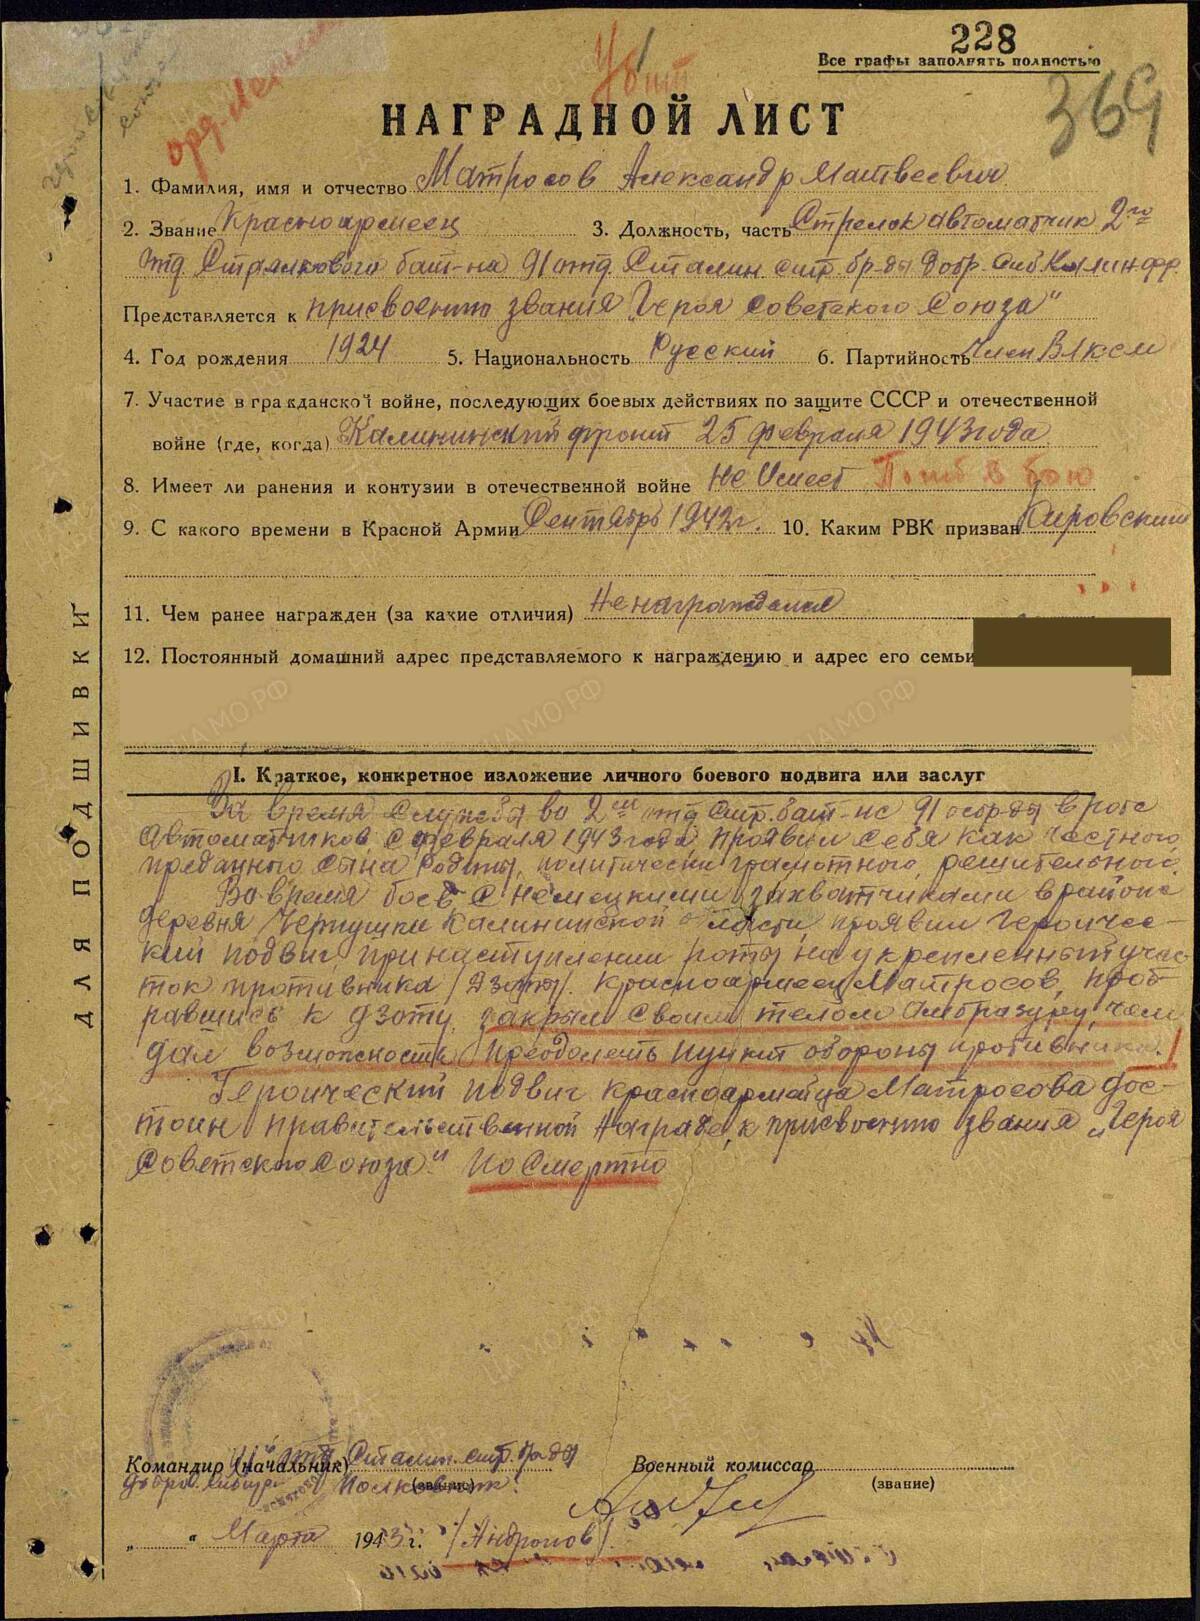 228
Все графы заполнять полностью
Убит
369
Герой Советского Союза
орд. Ленина
НАГРАДНОЙ ЛИСТ
1. Фамилия, имя и отчество Матросов Александр Матвеевич
2. Звание Красноармеец 3. Должность, часть Стрелок автоматчик 2го
отд. Стрелкового бат-на 91 отд. Сталин. стр. бр-ды Добр. Сиб. Калин фр.
Представляется к присвоению звания „Героя Советского Союза"
4. Год рождения 1924 5. Национальность Русский 6. Партийность Член ВЛКСМ
7. Участие в гражданской войне, последующих боевых действиях по защите СССР и отечественной
войне (где, когда) Калининский фронт 25 февраля 1943 года
8. Имеет ли ранения и контузии в отечественной войне Не Имеет Погиб в бою
9. С какого времени в Красной Армии Сентябрь 1942 г. 10. Каким РВК призван Кировский
11. Чем ранее награжден (за какие отличия) Не награждался
12. Постоянный домашний адрес представляемого к награждению и адрес его семьи
ДЛЯ ПОДШИВКИ
I. Краткое, конкретное изложение личного боевого подвига или заслуг
За время Службы во 2ом отд стр. бат-не 91 осбр-ды в роте
автоматчиков, с февраля 1943 года, проявил себя как честного,
преданного сына Родины, политически грамотного, решительного.
Во время боев с немецкими захватчиками в районе
деревня Чернушки Калининской области, проявил героичес-
кий подвиг, при наступлении роты на укрепленный учас-
ток противника /Дзоты/. Красноармеец Матросов, проб-
равшись к дзоту, закрыл своим телом амбразуру, чем
дал возможность преодолеть пункт обороны противника.
Героический подвиг красноармейца Матросова дос-
тоин правительственной награде, к присвоению звания „Героя
Советского Союза." посмертно
Командир (начальник) 91 отд. Сталин. стр. бр-ды Военный комиссар
Добров. Сибир. Полковник (звание) (звание)
„ " Марта 1943 г. /Андронов/